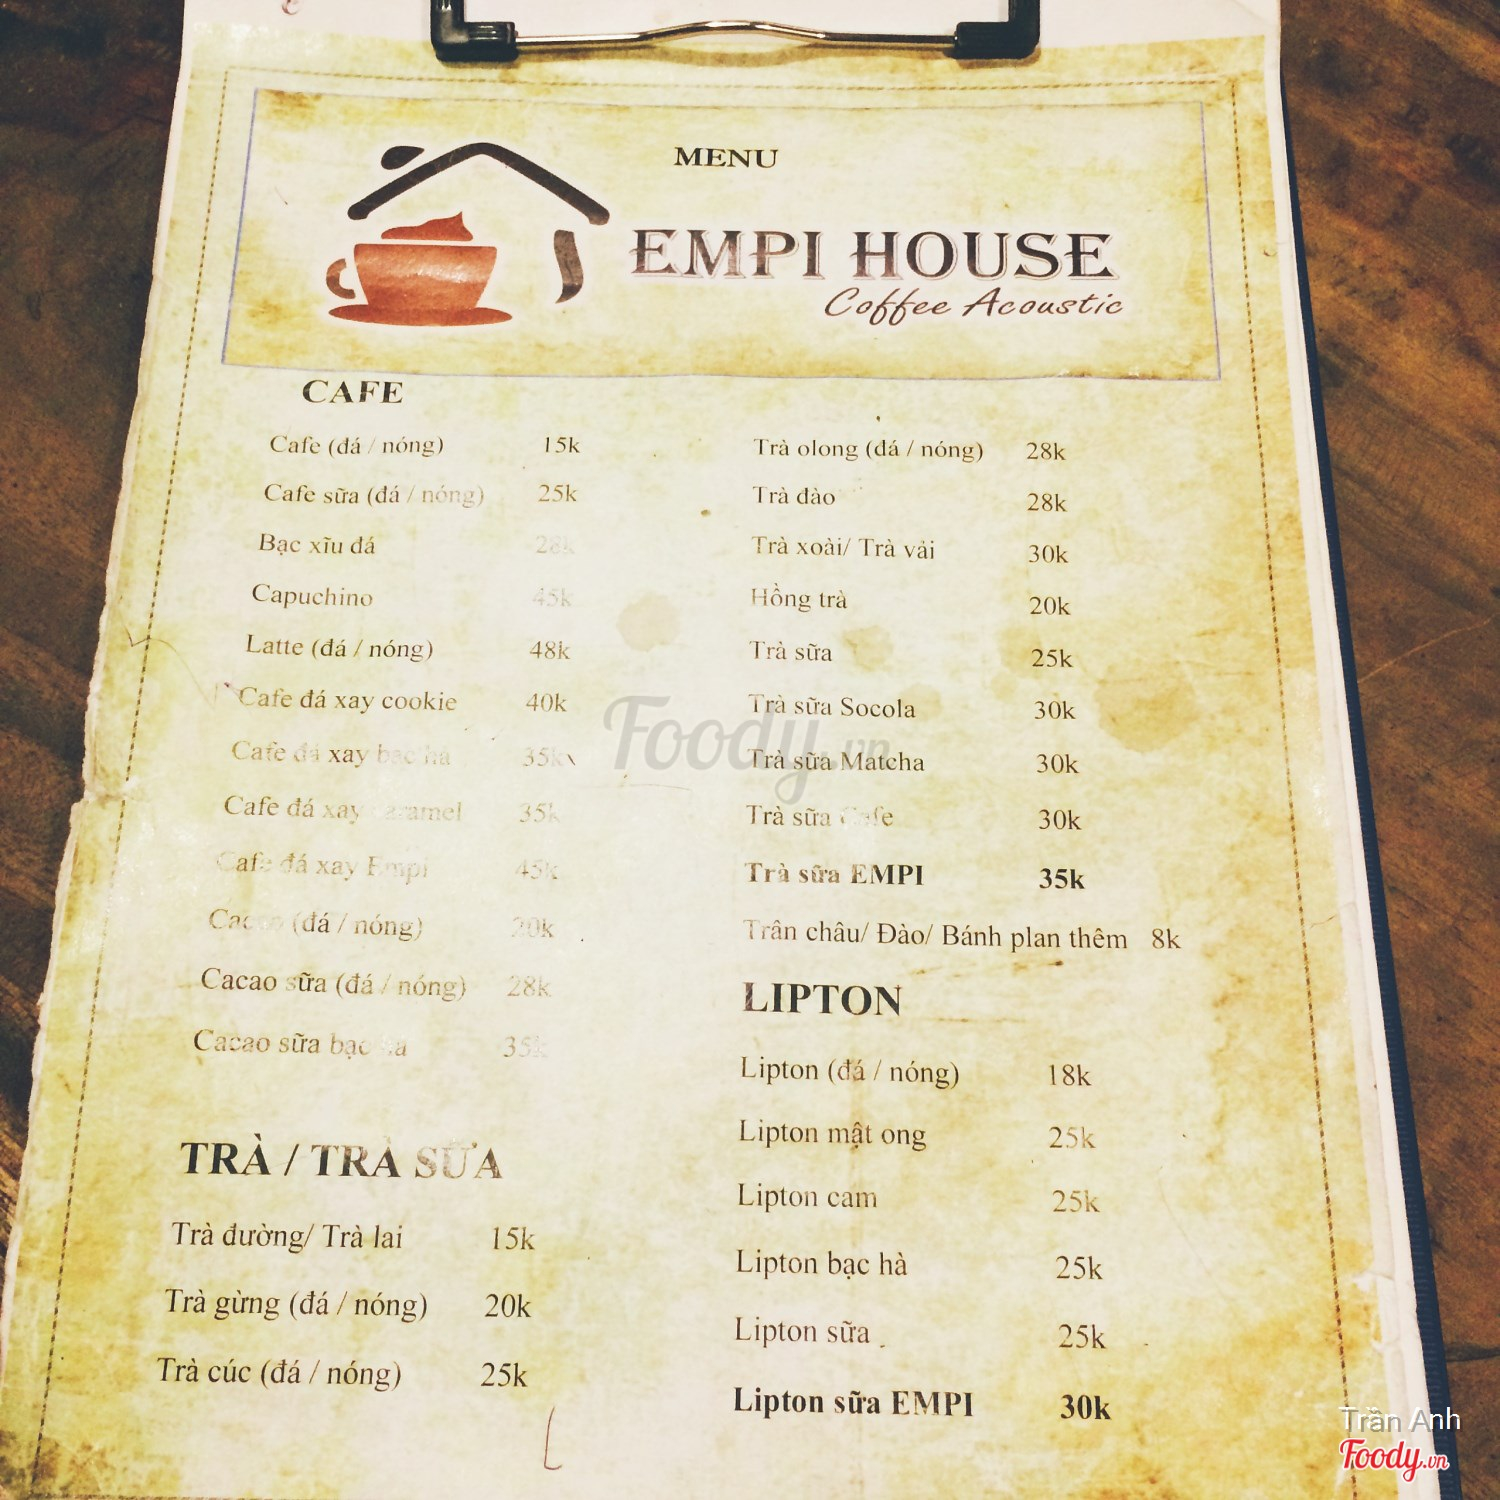 MENU
EMPI HOUSE
Coffee Acoustic
CAFE
Cafe (đá / nóng) 15k
Cafe sữa (đá / nóng) 25k
Bạc xĩu đá 28k
Capuchino 45k
Latte (đá / nóng) 48k
Cafe đá xay cookie 40k
Cafe đá xay bạc hà 35k
Cafe đá xay caramel 35k
Cafe đá xay Empi 45k
Cacao (đá / nóng) 20k
Cacao sữa (đá / nóng) 28k
Cacao sữa bạc hà 35k
TRÀ / TRÀ SỮA
Trà đường/ Trà lai 15k
Trà gừng (đá / nóng) 20k
Trà cúc (đá / nóng) 25k
Trà olong (đá / nóng) 28k
Trà đào 28k
Trà xoài/ Trà vải 30k
Hồng trà 20k
Trà sữa 25k
Trà sữa Socola 30k
Trà sữa Matcha 30k
Trà sữa Cafe 30k
Trà sữa EMPI 35k
Trân châu/ Đào/ Bánh plan thêm 8k
LIPTON
Lipton (đá / nóng) 18k
Lipton mật ong 25k
Lipton cam 25k
Lipton bạc hà 25k
Lipton sữa 25k
Lipton sữa EMPI 30k
Foody.vn
Trần Anh
Foody.vn